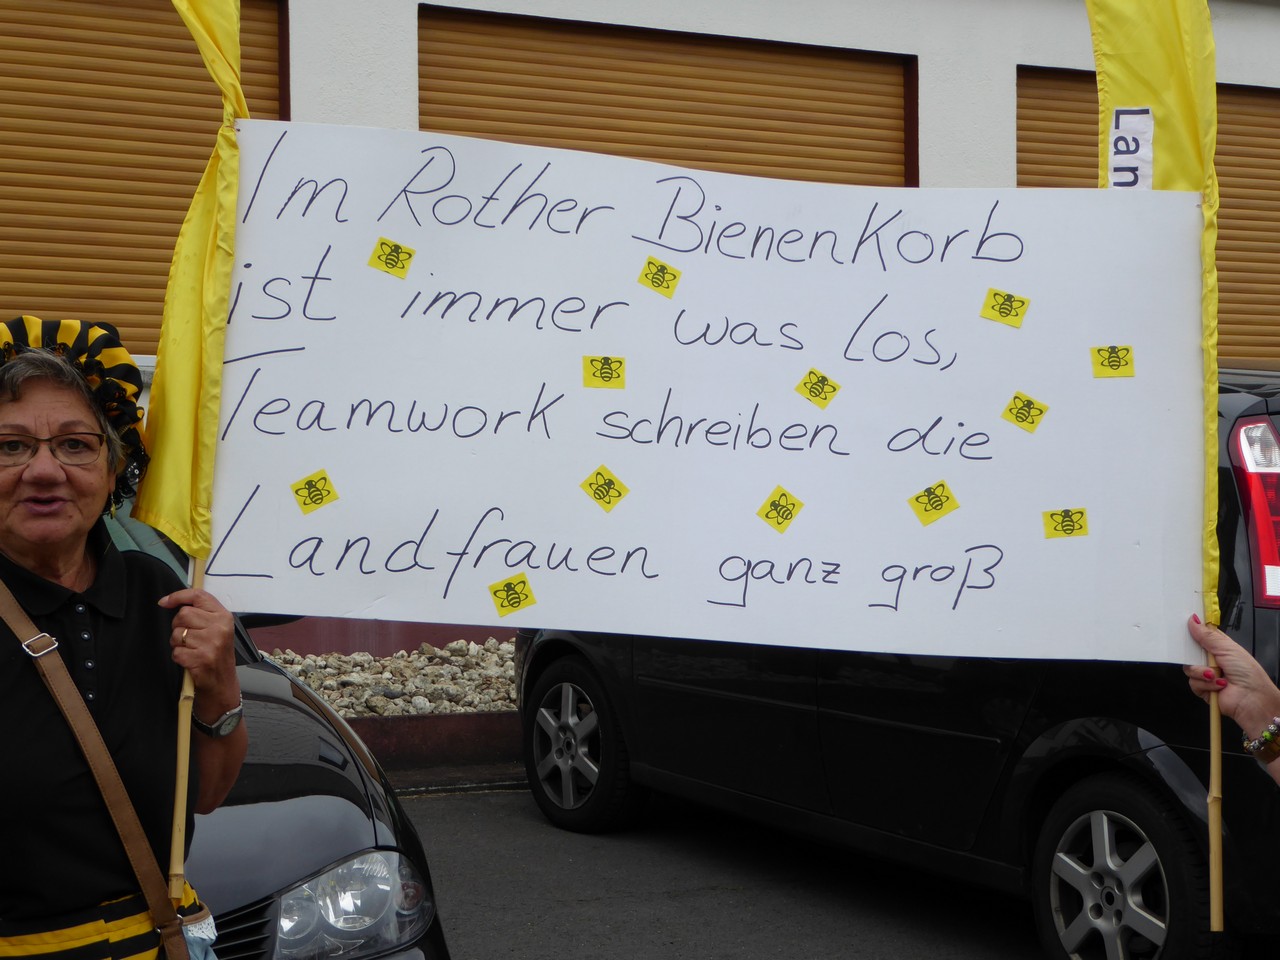 Im Rother Bienenkorb
ist immer was los,
Teamwork schreiben die
Landfrauen ganz groß
Lan